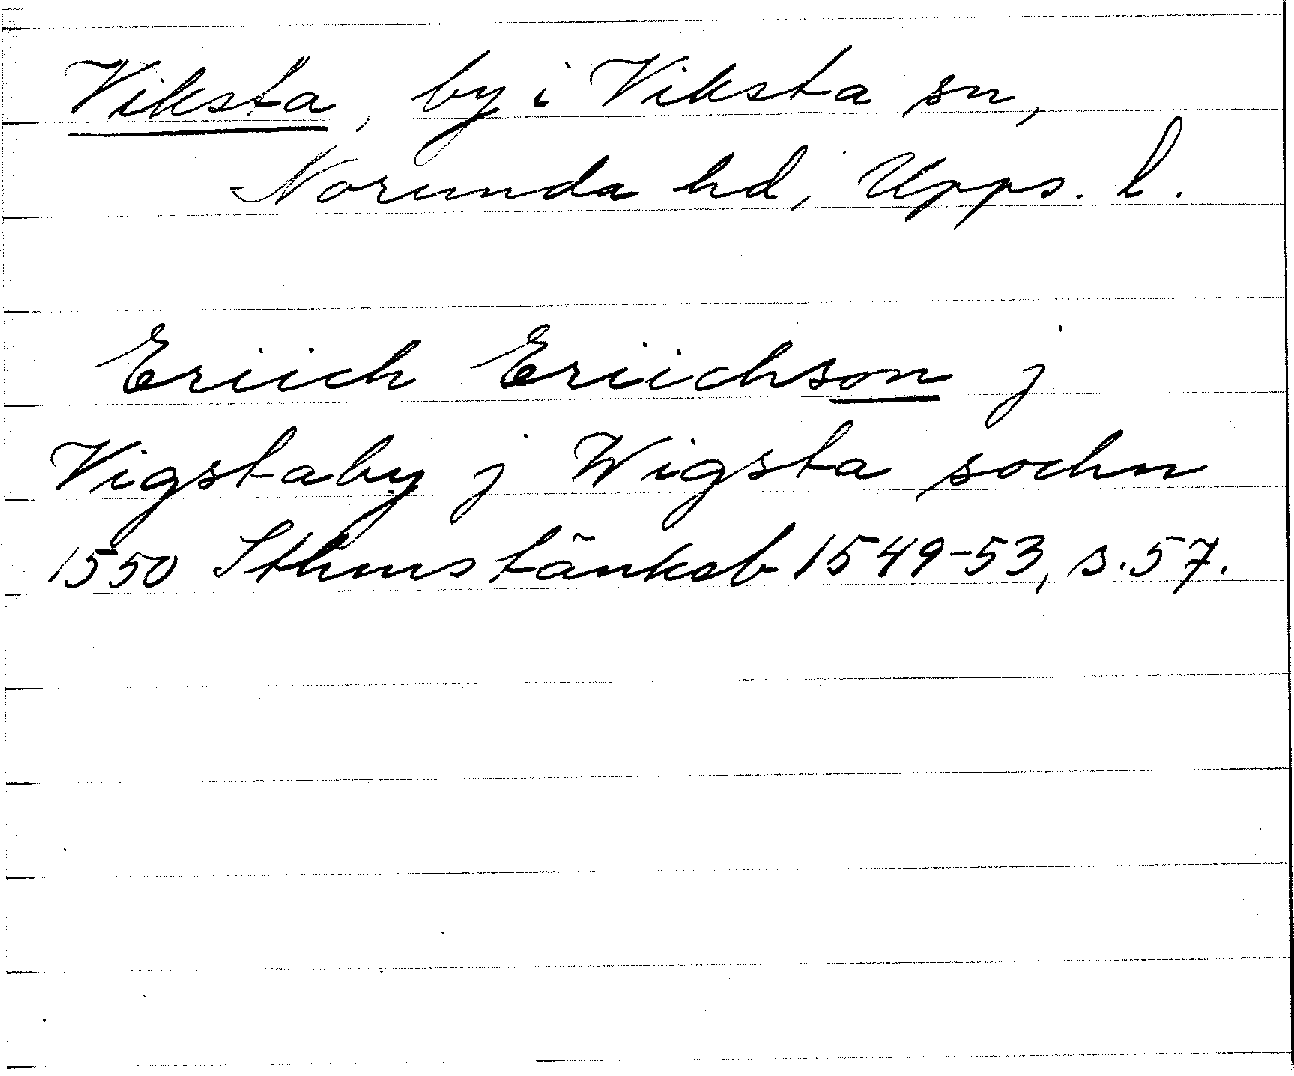 Viksta, by i Viksta sn,
Norunda hd, Upps. l.
Eriich Eriichson j
Vigstaby j Wigsta sochn
1550 Sthms tänkeb 1549-53, s. 57.